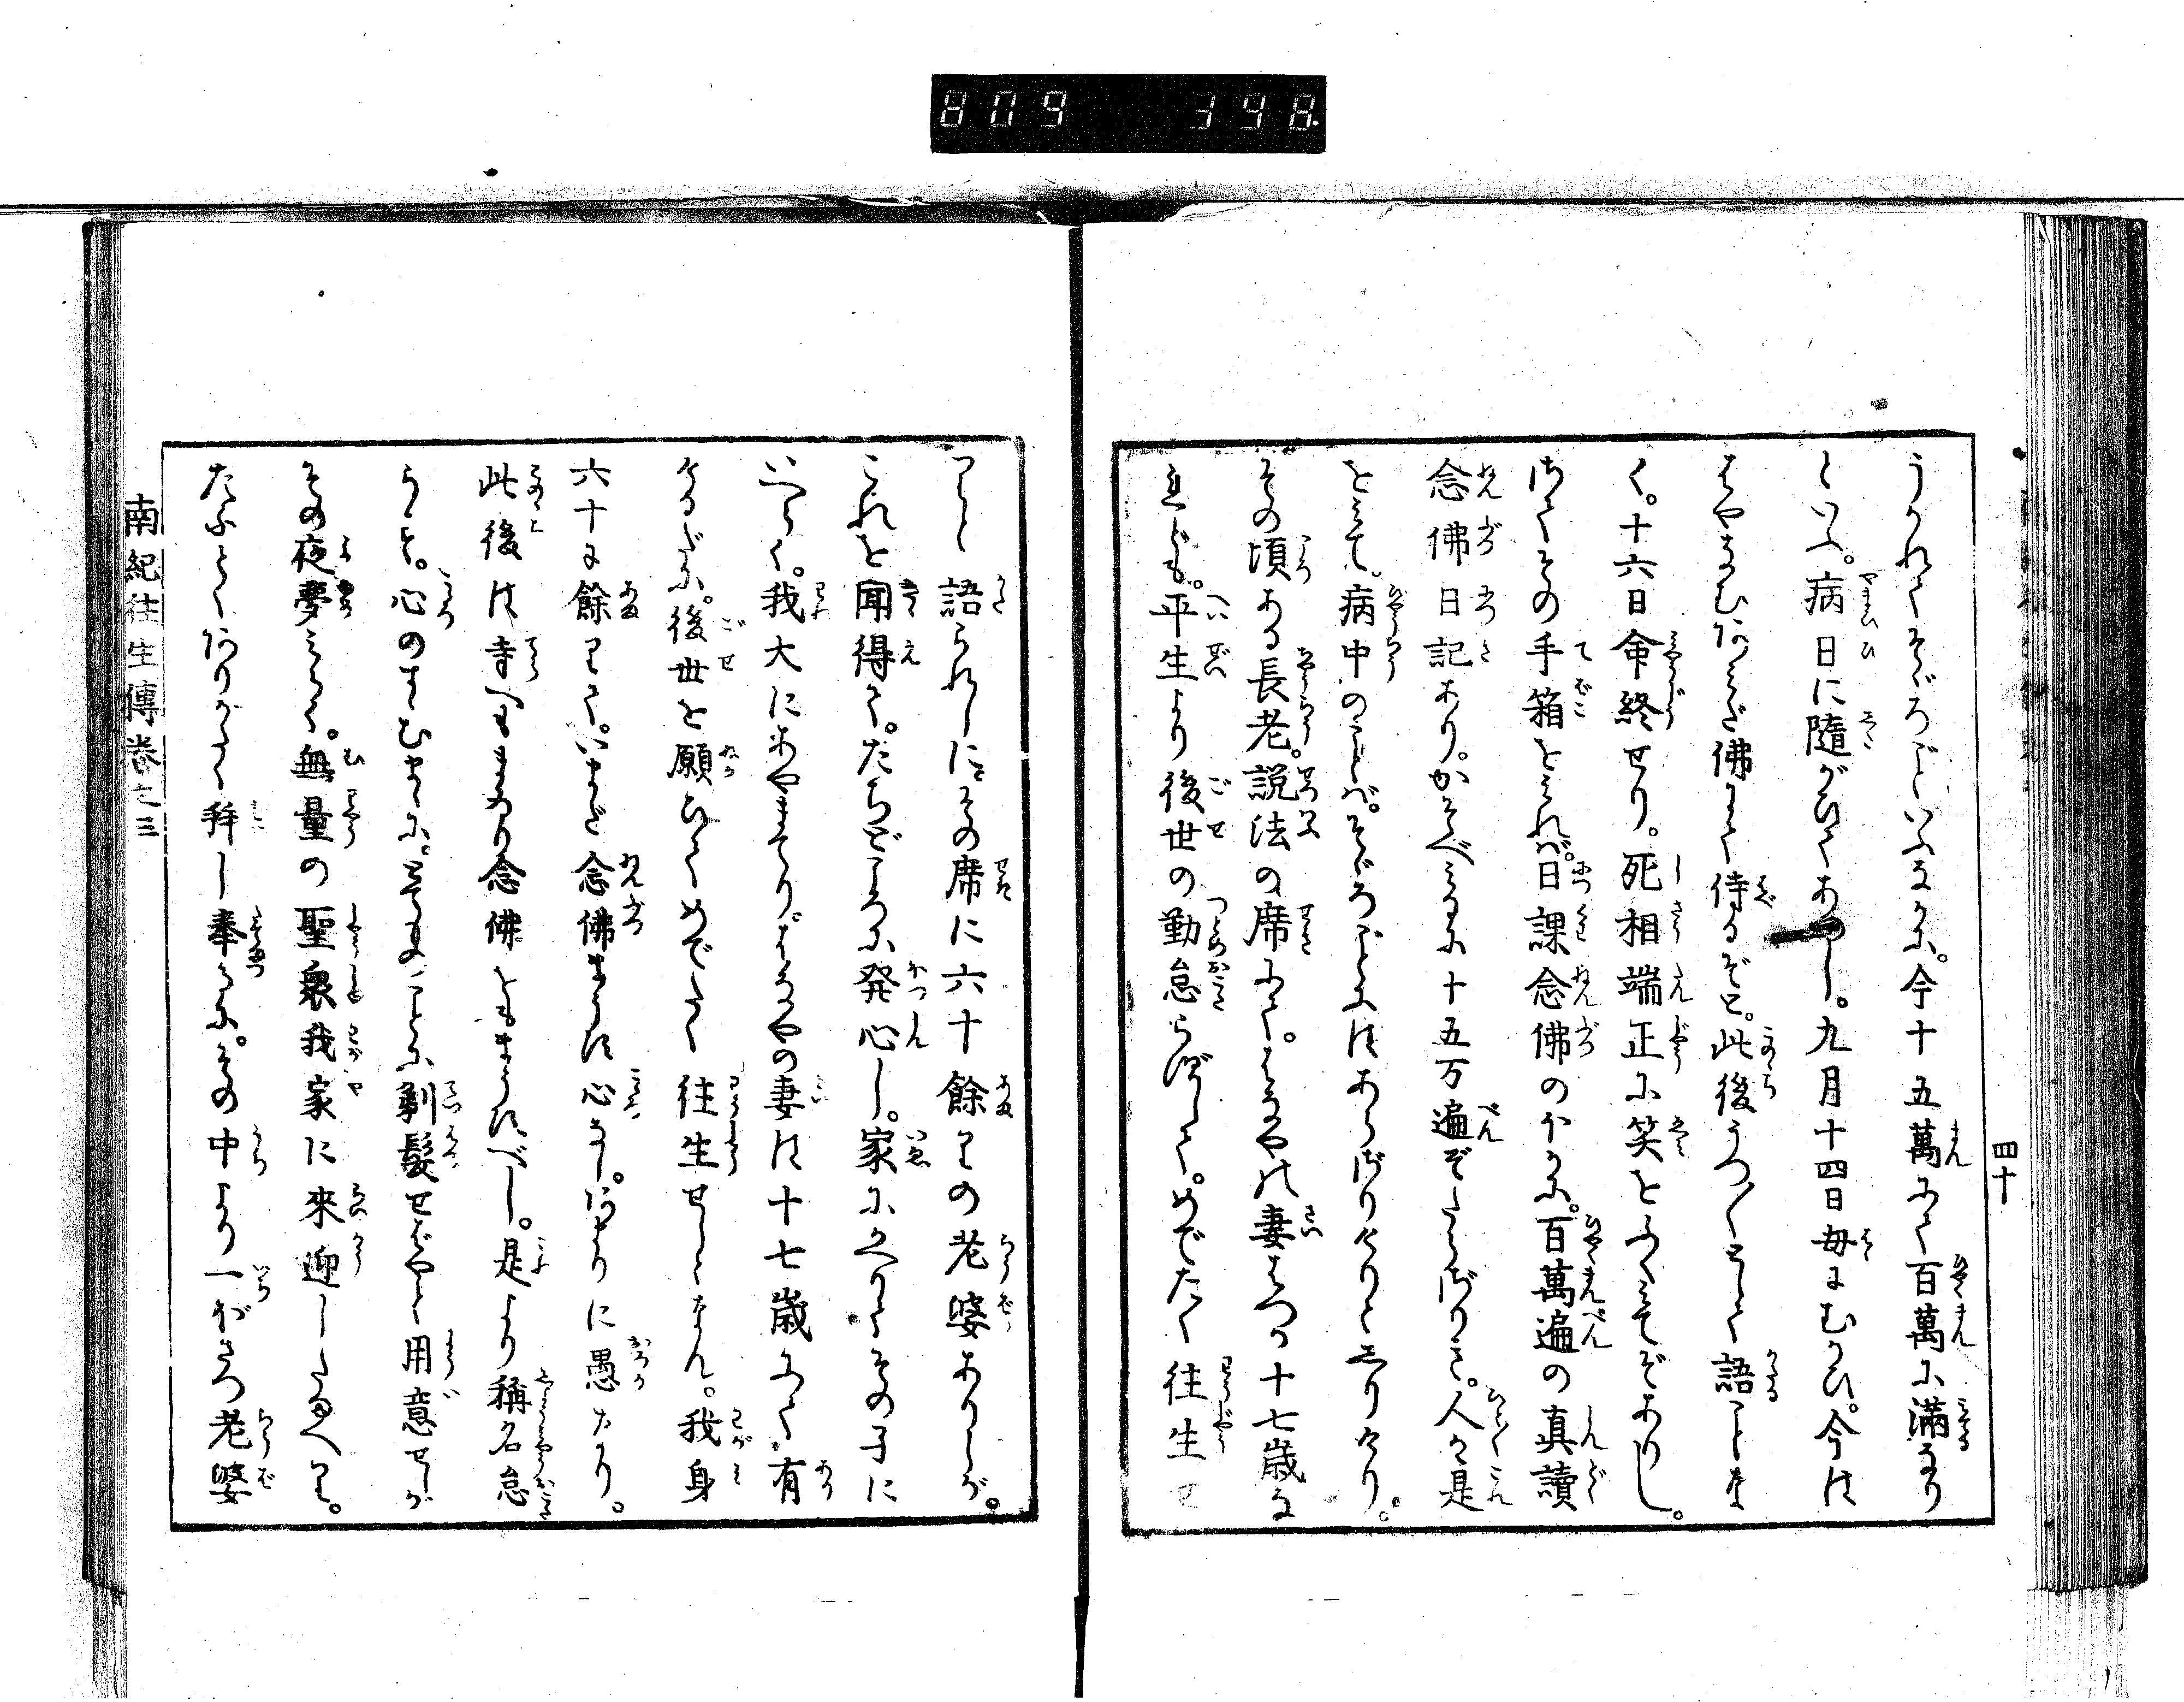 809 398
四十
うかれてそぞろごといふならん。今十五萬にて百萬に滿なり
といふ。病日に隨がひてあつし。九月十四日毎にむかひ。今は
はやなむあみだ佛にて侍るぞと。此後うつ〳〵として語ことな
く。十六日命終せり。死相端正に笑をふくみてぞありし。
さてその手箱をみれば。日課念佛のほかに。百萬遍の真讀
念佛日記あり。かぞへみるに十五万遍ぞたらざりき。人々是
をみて。病中のことば。そぞろごとにはあらざりけりとしりけり。
その頃ある長老。説法の席にて。はなやの妻はつか十七歳な
れども。平生より後世の勤怠らずして。めでたく往生せ
つと語られしに。その席に六十餘りの老婆ありしが。
これを聞得て。たちどころに発心し。家にかへりてその子に
いへらく。我大にあやまてり。はなやの妻は十七歳にて有
けるだに。後世を願ひてめでたく往生せしとなん。我身
六十に餘りて。いまだ念佛まうす心なし。あまりに愚なり。
此後は寺へもまゐり念佛をもまうすべし。是より稱名怠
らず。心のすむまゝに。とてものことに剃髮せばやと用意せしが
その夜夢みらく。無量の聖衆我家に來迎したまへり。
たふとくありがたく拜し奉るに。その中より一ぼさつ老婆
南紀往生傳卷之三